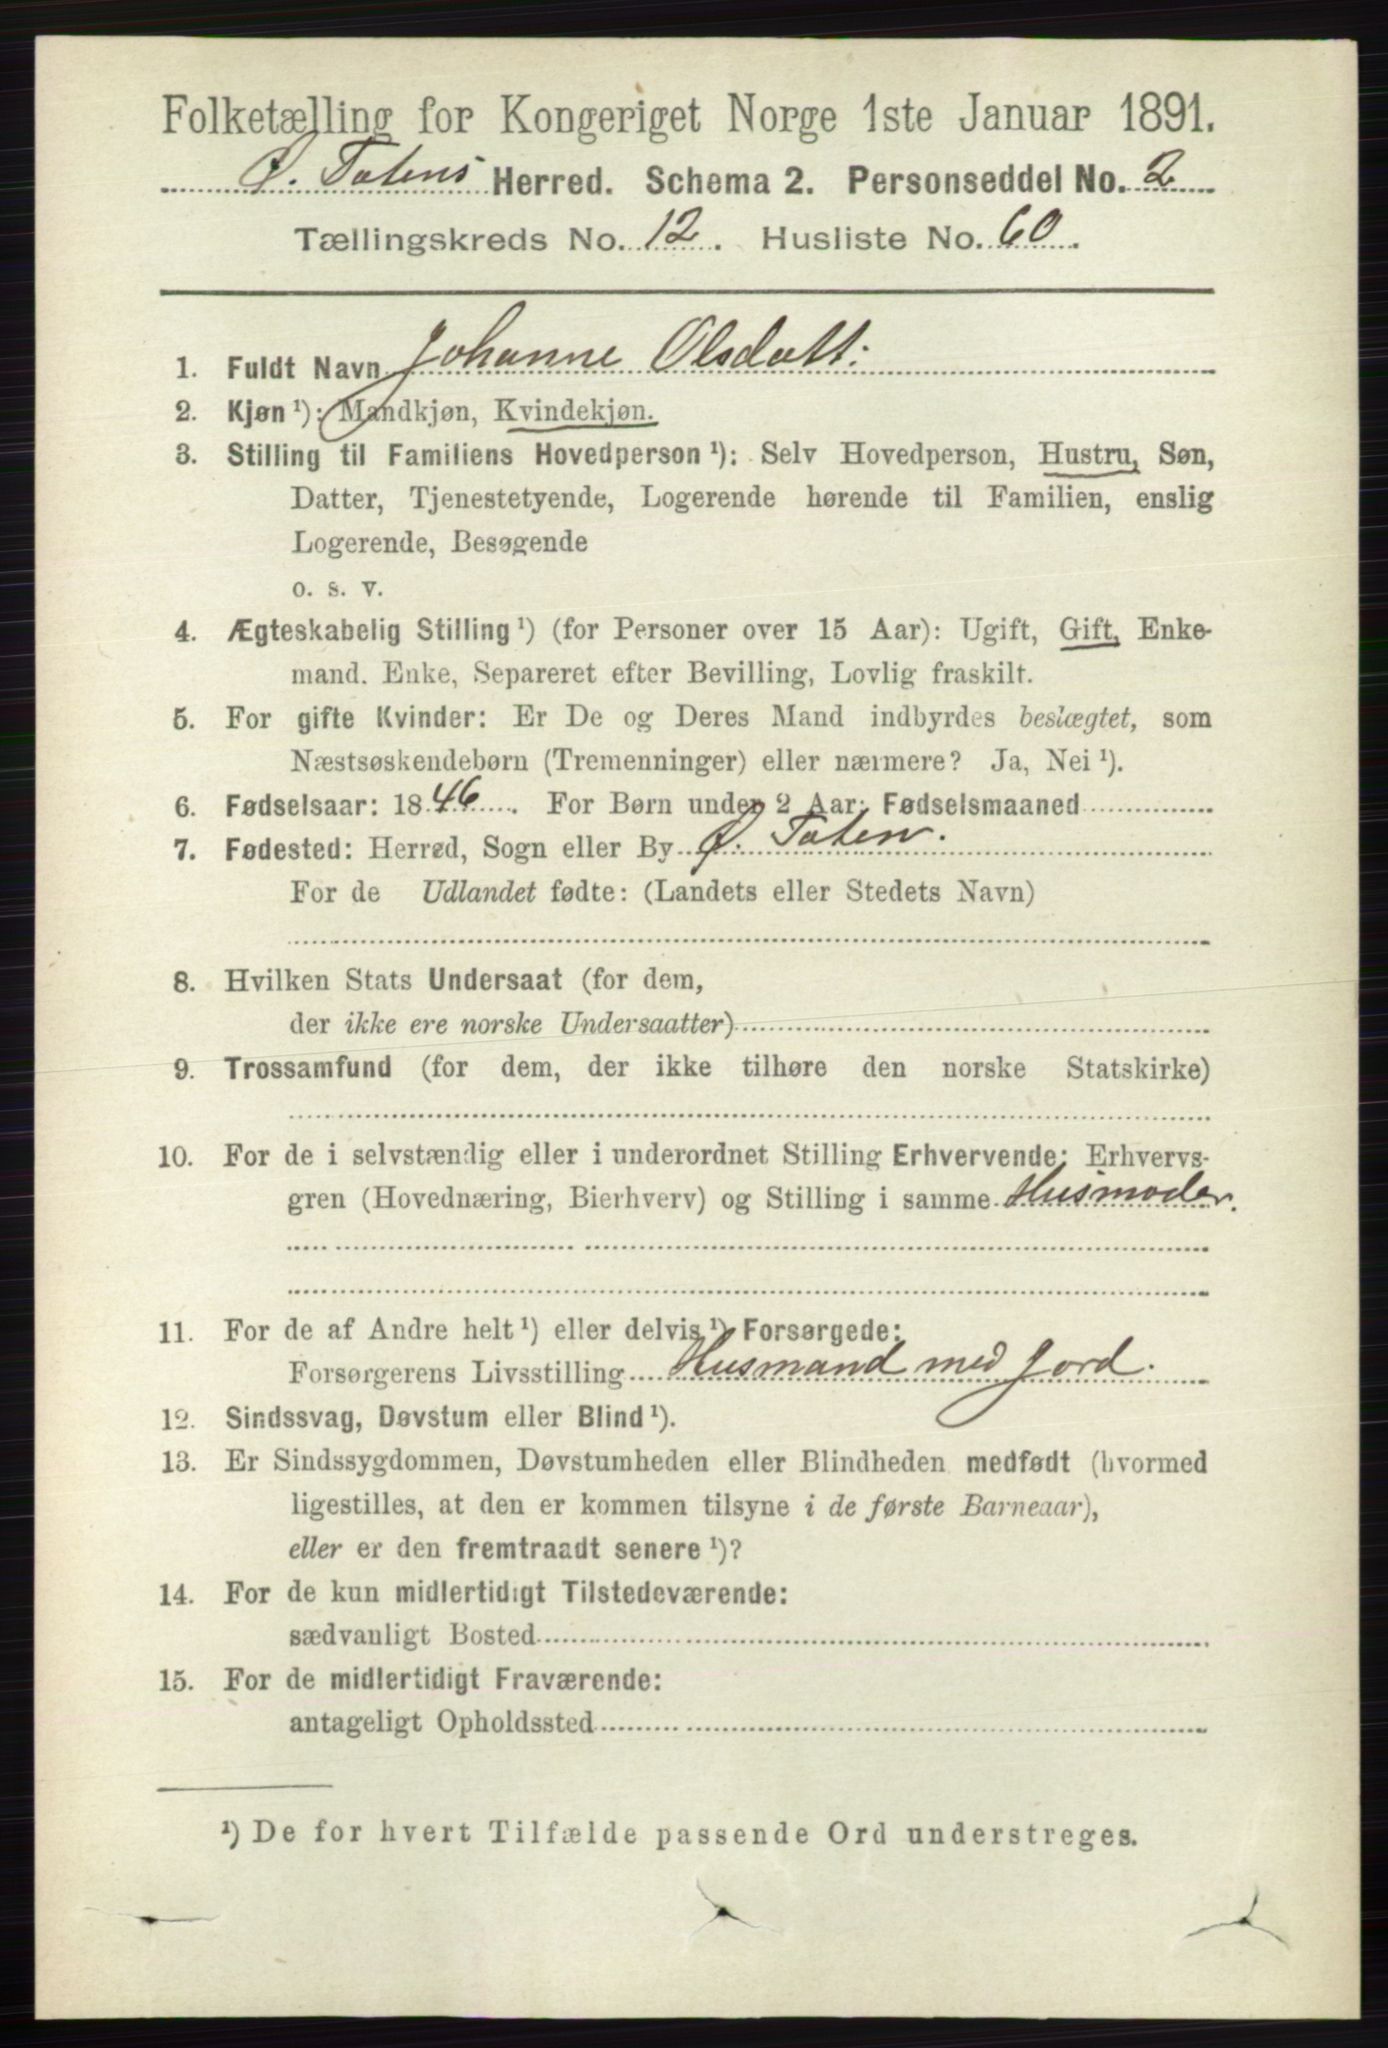 Folketælling for Kongeriget Norge 1ste Januar 1891.
Ø. Totens Herred. Schema 2. Personseddel No. 2
Tællingskreds No. 12. Husliste No. 60.
1. Fuldt Navn Johanne Olsdatt:
2. Kjøn ¹): Mandkjøn, Kvindekjøn.
3. Stilling til Familiens Hovedperson ¹): Selv Hovedperson, Hustru, Søn,
Datter, Tjenestetyende, Logerende hørende til Familien, enslig
Logerende, Besøgende
o. s. v.
4. Ægteskabelig Stilling ¹) (for Personer over 15 Aar): Ugift, Gift, Enke-
mand. Enke, Separeret efter Bevilling, Lovlig fraskilt.
5. For gifte Kvinder: Er De og Deres Mand indbyrdes beslægtet, som
Næstsøskendebørn (Tremenninger) eller nærmere? Ja, Nei ¹).
6. Fødselsaar: 1846. For Børn under 2 Aar: Fødselsmaaned
7. Fødested: Herred, Sogn eller By Ø. Toten.
For de Udlandet fødte: (Landets eller Stedets Navn)
8. Hvilken Stats Undersaat (for dem,
der ikke ere norske Undersaatter)
9. Trossamfund (for dem, der ikke tilhøre den norske Statskirke)
10. For de i selvstændig eller i underordnet Stilling Erhvervende: Erhvervs-
gren (Hovednæring, Bierhverv) og Stilling i samme Husmoder.
11. For de af Andre helt ¹) eller delvis ¹) Forsørgede:
Forsørgerens Livsstilling Husmand med Jord.
12. Sindssvag, Døvstum eller Blind ¹).
13. Er Sindssygdommen, Døvstumheden eller Blindheden medfødt (hvormed
ligestilles, at den er kommen tilsyne i de første Barneaar),
eller er den fremtraadt senere ¹)?
14. For de kun midlertidigt Tilstedeværende:
sædvanligt Bosted
15. For de midlertidigt Fraværende:
antageligt Opholdssted
¹) De for hvert Tilfælde passende Ord understreges.